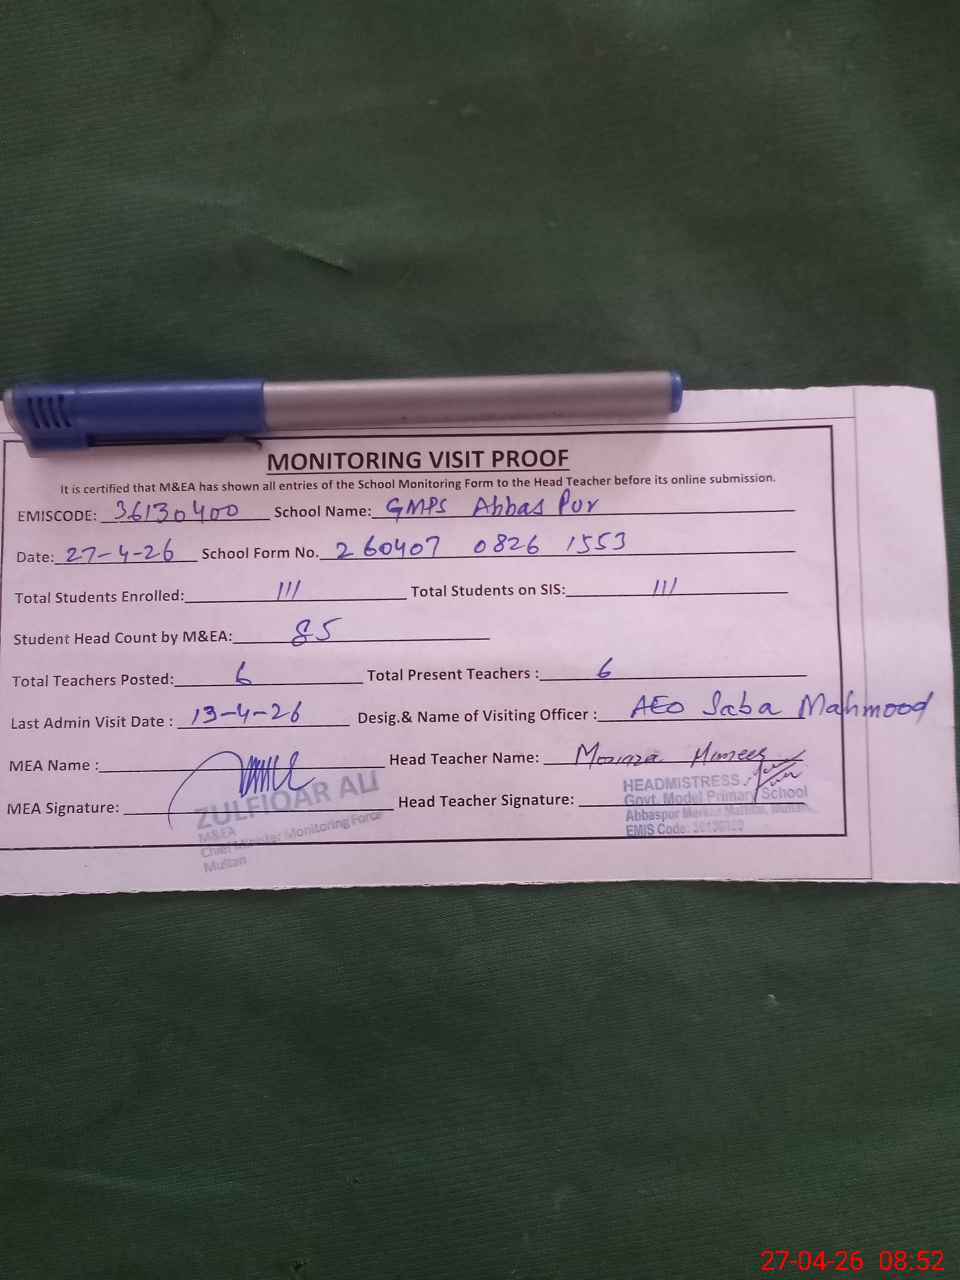 MONITORING VISIT PROOF
It is certified that M&EA has shown all entries of the School Monitoring Form to the Head Teacher before its online submission.
EMISCODE: 36130400 School Name: GMPS Abbas Pur
Date: 27-4-26 School Form No. 260407 0826 1553
Total Students Enrolled: 111 Total Students on SIS: 111
Student Head Count by M&EA: 85
Total Teachers Posted: 6 Total Present Teachers : 6
Last Admin Visit Date : 13-4-26 Desig.& Name of Visiting Officer : AEO Saba Mahmood
MEA Name : Head Teacher Name:
MEA Signature: Head Teacher Signature:
ZULFIQAR ALI
M&EA
Chief Minister Monitoring Force
Multan
HEADMISTRESS
Govt. Model Primary School
Abbaspur
EMIS Code:
27-04-26 08:52